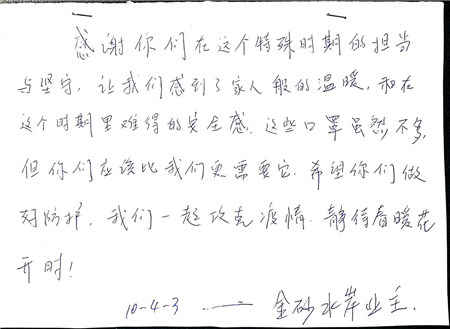 感谢你们在这个特殊时期的担当
与坚守，让我们感到了家人般的温暖，和在
这个时期里难得的安全感，这些口罩虽然不多，
但你们应该比我们更需要它，希望你们做
好防护，我们一起攻克疫情，静待春暖花
开时！
10-4-3 —— 金砂水岸业主.